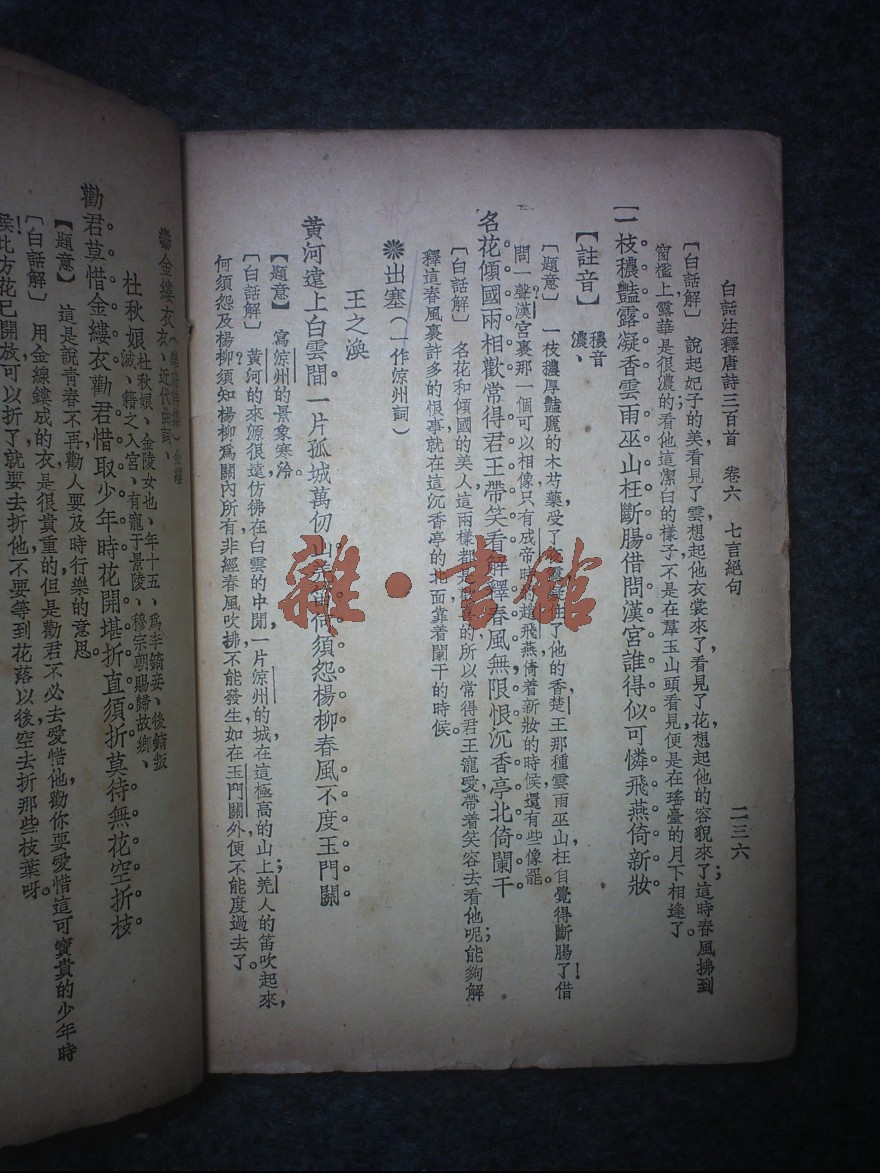 白話注釋唐詩三百首　卷六　七言絕句　二三六
［白話解］　說起妃子的美，看見了雲想起他衣裳來了，看見了花想起他的容貌來了；這時春風拂到
窗檻上露華是很濃的看他這潔白的樣子，不是在羣玉山頭看見，便是在瑤臺的月下相逢了。
一枝穠艷露凝香雲雨巫山枉斷腸借問漢宮誰得似可憐飛燕倚新妝
【註音】　穠音濃、
［題意］　一枝穠厚艷麗的木芍藥，受了 住了他的香楚王那種雲雨巫山枉自覺得斷腸了！借
問一聲漢宮裏那一個可以相像？只有成帝時 趙飛燕倚着新妝的時候，還有些像罷。
名花傾國兩相歡常得君王帶笑看解釋春風無限恨沉香亭北倚闌干
［白話解］　名花和傾國的美人，這兩樣都是 的，所以常得君王寵愛，帶着笑容去看他呢；能夠解
釋這春風裏許多的恨事，就在這沉香亭的北面靠着闌干的時候。
出塞（一作涼州詞）
王之渙
黃河遠上白雲間一片孤城萬仞山羌笛何須怨楊柳春風不度玉門關
【題意】　寫涼州的景象寒冷。
［白話解］　黃河的來源很遠，仿彿在白雲的中間，一片涼州的城，在這極高的山上；羌人的笛吹起來，
何須怨及楊柳？須知楊柳爲關內所有，非經春風吹拂，不能發生，如在玉門關外，便不能度過去了。
金縷衣（樂府詩集）金縷
衣、近代曲詞、
杜秋娘　杜秋娘、金陵女也、年十五、爲李錡妾、後錡叛
滅、籍之入宮、有寵于景陵、穆宗朝賜歸故鄉、
勸君莫惜金縷衣勸君惜取少年時花開堪折直須折莫待無花空折枝
【題意】　這是說青春不再，勸人要及時行樂的意思。
［白話解］　用金線縷成的衣，是很貴重的，但是勸君不必去愛惜他，勸你要愛惜這可寶貴的少年時
候！比方花已開放，可以折了，就要去折他，不要等到花落以後，空去折那些枝葉呀。
雜·書館